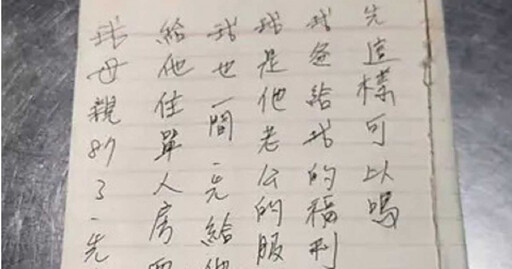 先這樣可以嗎
我爸給我的福利
我是他老公的服
我也一間先給他
給他住單人房
我母親87了先